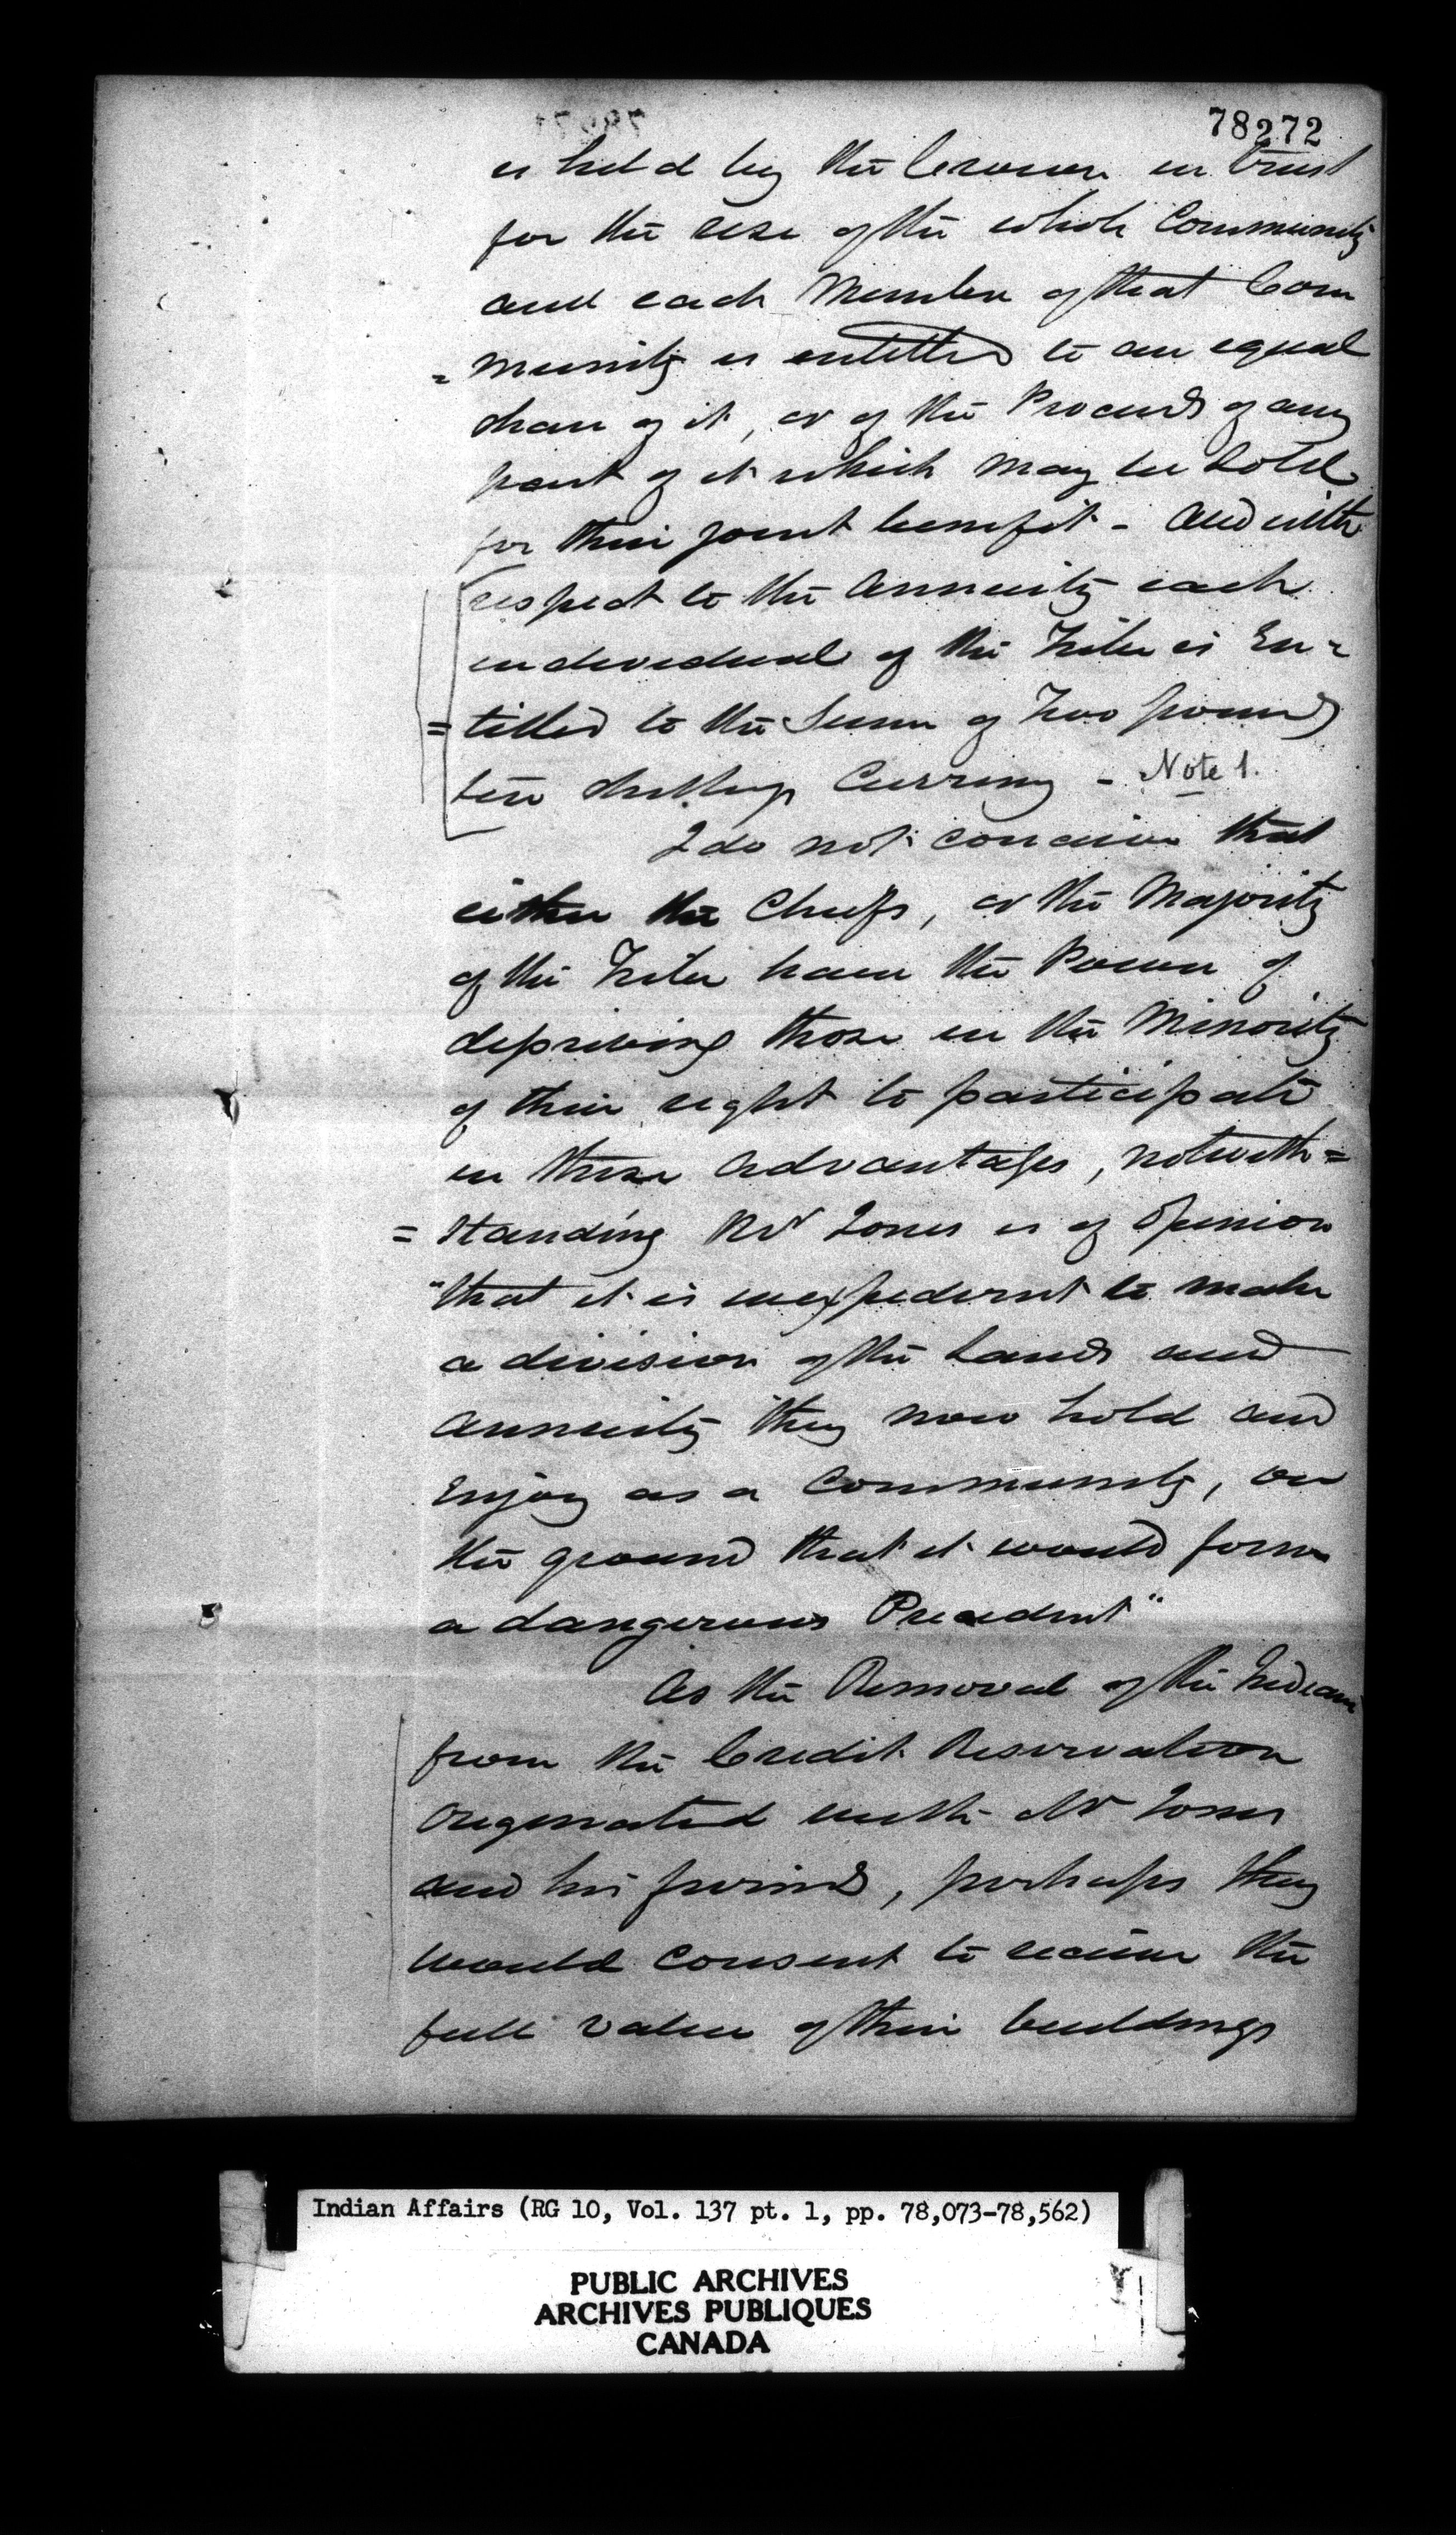 78272
is held by the Crown in trust
for the use of the whole Community
and each Member of that Com
= munity is entitled to an equal
share of it, or of the Proceeds of any
part of it which may be Sold
for their joint benefit - And with
respect to the Annuity each
individual of the Tribe is En=
= titled to the Sum of Two pounds
ten shillings Currency - Note 1.
I do not conceive that
either the Chiefs, or the Majority
of the Tribe have the Power of
depriving those in the Minority
of their right to participate
in these advantages, notwith=
= standing Mr Jones is of Opinion
"that it is inexpedient to make
a division of the Lands and
Annuity they now hold and
Enjoy as a Community, on
the ground that it would form
a dangerous Precedent"
As the Removal of the Indians
from the Credit Reservation
Originated with Mr Jones
and his friends, perhaps they
would Consent to receive the
full value of their buildings
Indian Affairs (RG 10, Vol. 137 pt. 1, pp. 78,073-78,562)
PUBLIC ARCHIVES
ARCHIVES PUBLIQUES
CANADA